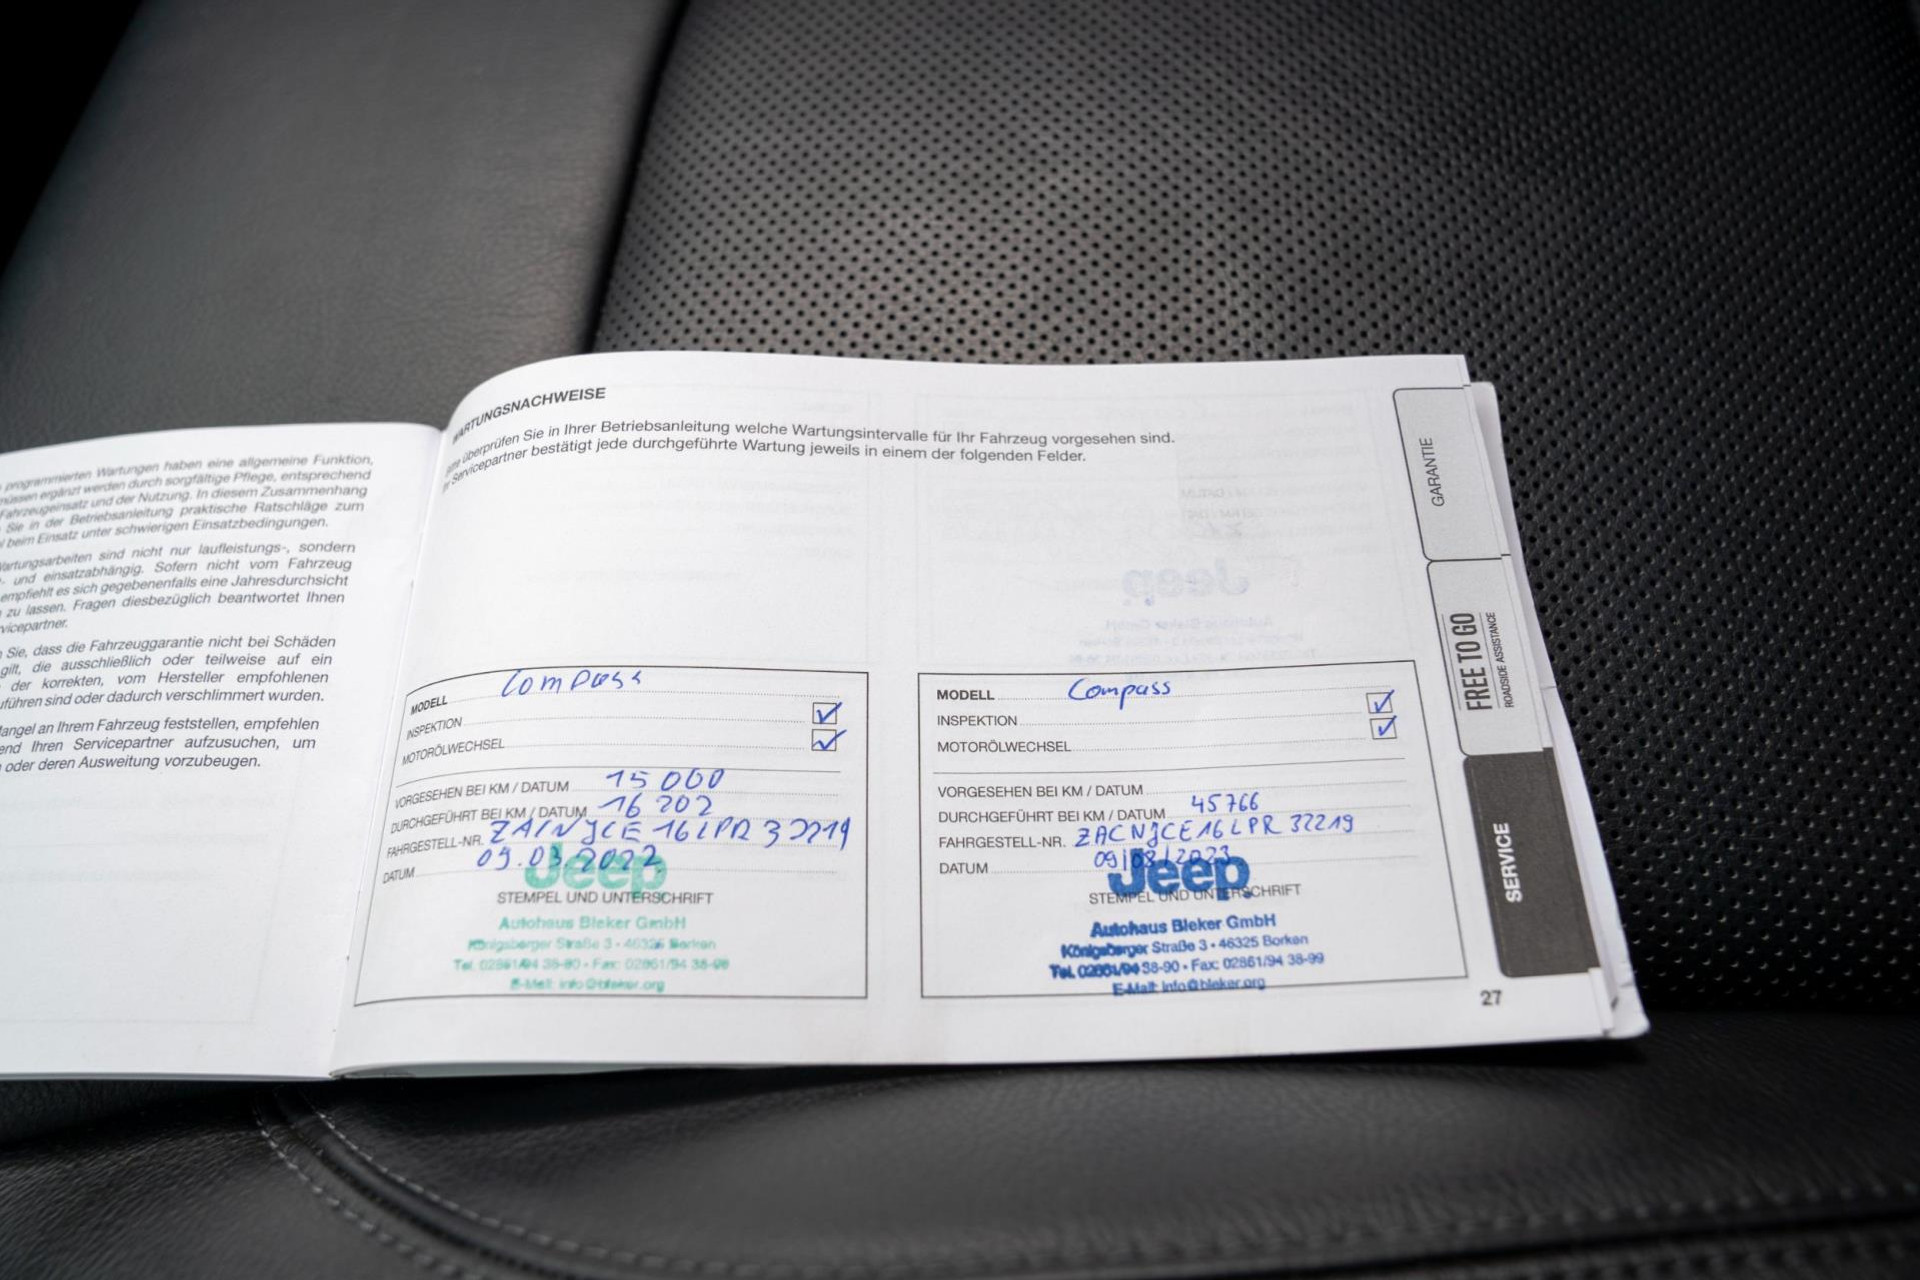 programmierten Wartungen haben eine allgemeine Funktion,
müssen ergänzt werden durch sorgfältige Pflege, entsprechend
Fahrzeugeinsatz und der Nutzung. In diesem Zusammenhang
Sie in der Betriebsanleitung praktische Ratschläge zum
beim Einsatz unter schwierigen Einsatzbedingungen.
Wartungsarbeiten sind nicht nur laufleistungs-, sondern
- und einsatzabhängig. Sofern nicht vom Fahrzeug
empfiehlt es sich gegebenenfalls eine Jahresdurchsicht
zu lassen. Fragen diesbezüglich beantwortet Ihnen
vicepartner.
Sie, dass die Fahrzeuggarantie nicht bei Schäden
gilt, die ausschließlich oder teilweise auf ein
der korrekten, vom Hersteller empfohlenen
uführen sind oder dadurch verschlimmert wurden.
langel an Ihrem Fahrzeug feststellen, empfehlen
end Ihren Servicepartner aufzusuchen, um
oder deren Ausweitung vorzubeugen.
WARTUNGSNACHWEISE
Bitte überprüfen Sie in Ihrer Betriebsanleitung welche Wartungsintervalle für Ihr Fahrzeug vorgesehen sind.
Ihr Servicepartner bestätigt jede durchgeführte Wartung jeweils in einem der folgenden Felder.
MODELL Compass
INSPEKTION ✓
MOTORÖLWECHSEL ✓
VORGESEHEN BEI KM / DATUM 15 000
DURCHGEFÜHRT BEI KM / DATUM 16 202
FAHRGESTELL-NR. ZACNJCE16LPR32219
DATUM 09.03.2022
Jeep
STEMPEL UND UNTERSCHRIFT
Autohaus Bleker GmbH
Königsberger Straße 3 • 46325 Borken
Tel. 02861/94 38-90 • Fax: 02861/94 38-99
E-Mail: info@bleker.org
MODELL Compass
INSPEKTION ✓
MOTORÖLWECHSEL ✓
VORGESEHEN BEI KM / DATUM
DURCHGEFÜHRT BEI KM / DATUM 45766
FAHRGESTELL-NR. ZACNJCE16LPR32219
DATUM 09/08/2023
Jeep
STEMPEL UND UNTERSCHRIFT
Autohaus Bleker GmbH
Königsberger Straße 3 • 46325 Borken
Tel. 02861/94 38-90 • Fax: 02861/94 38-99
E-Mail: info@bleker.org
GARANTIE
FREE TO GO
ROADSIDE ASSISTANCE
SERVICE
27